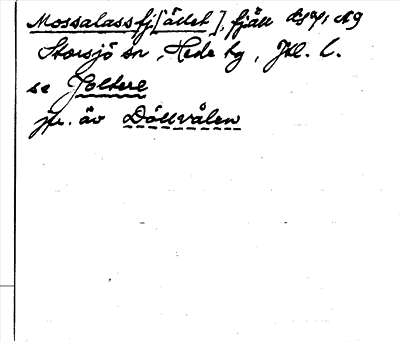 Mossalassfj[ället], fjäll
Storsjö sn, Hede tg, Jtl. l.
se Joltere
jfr. äv Döllvålen